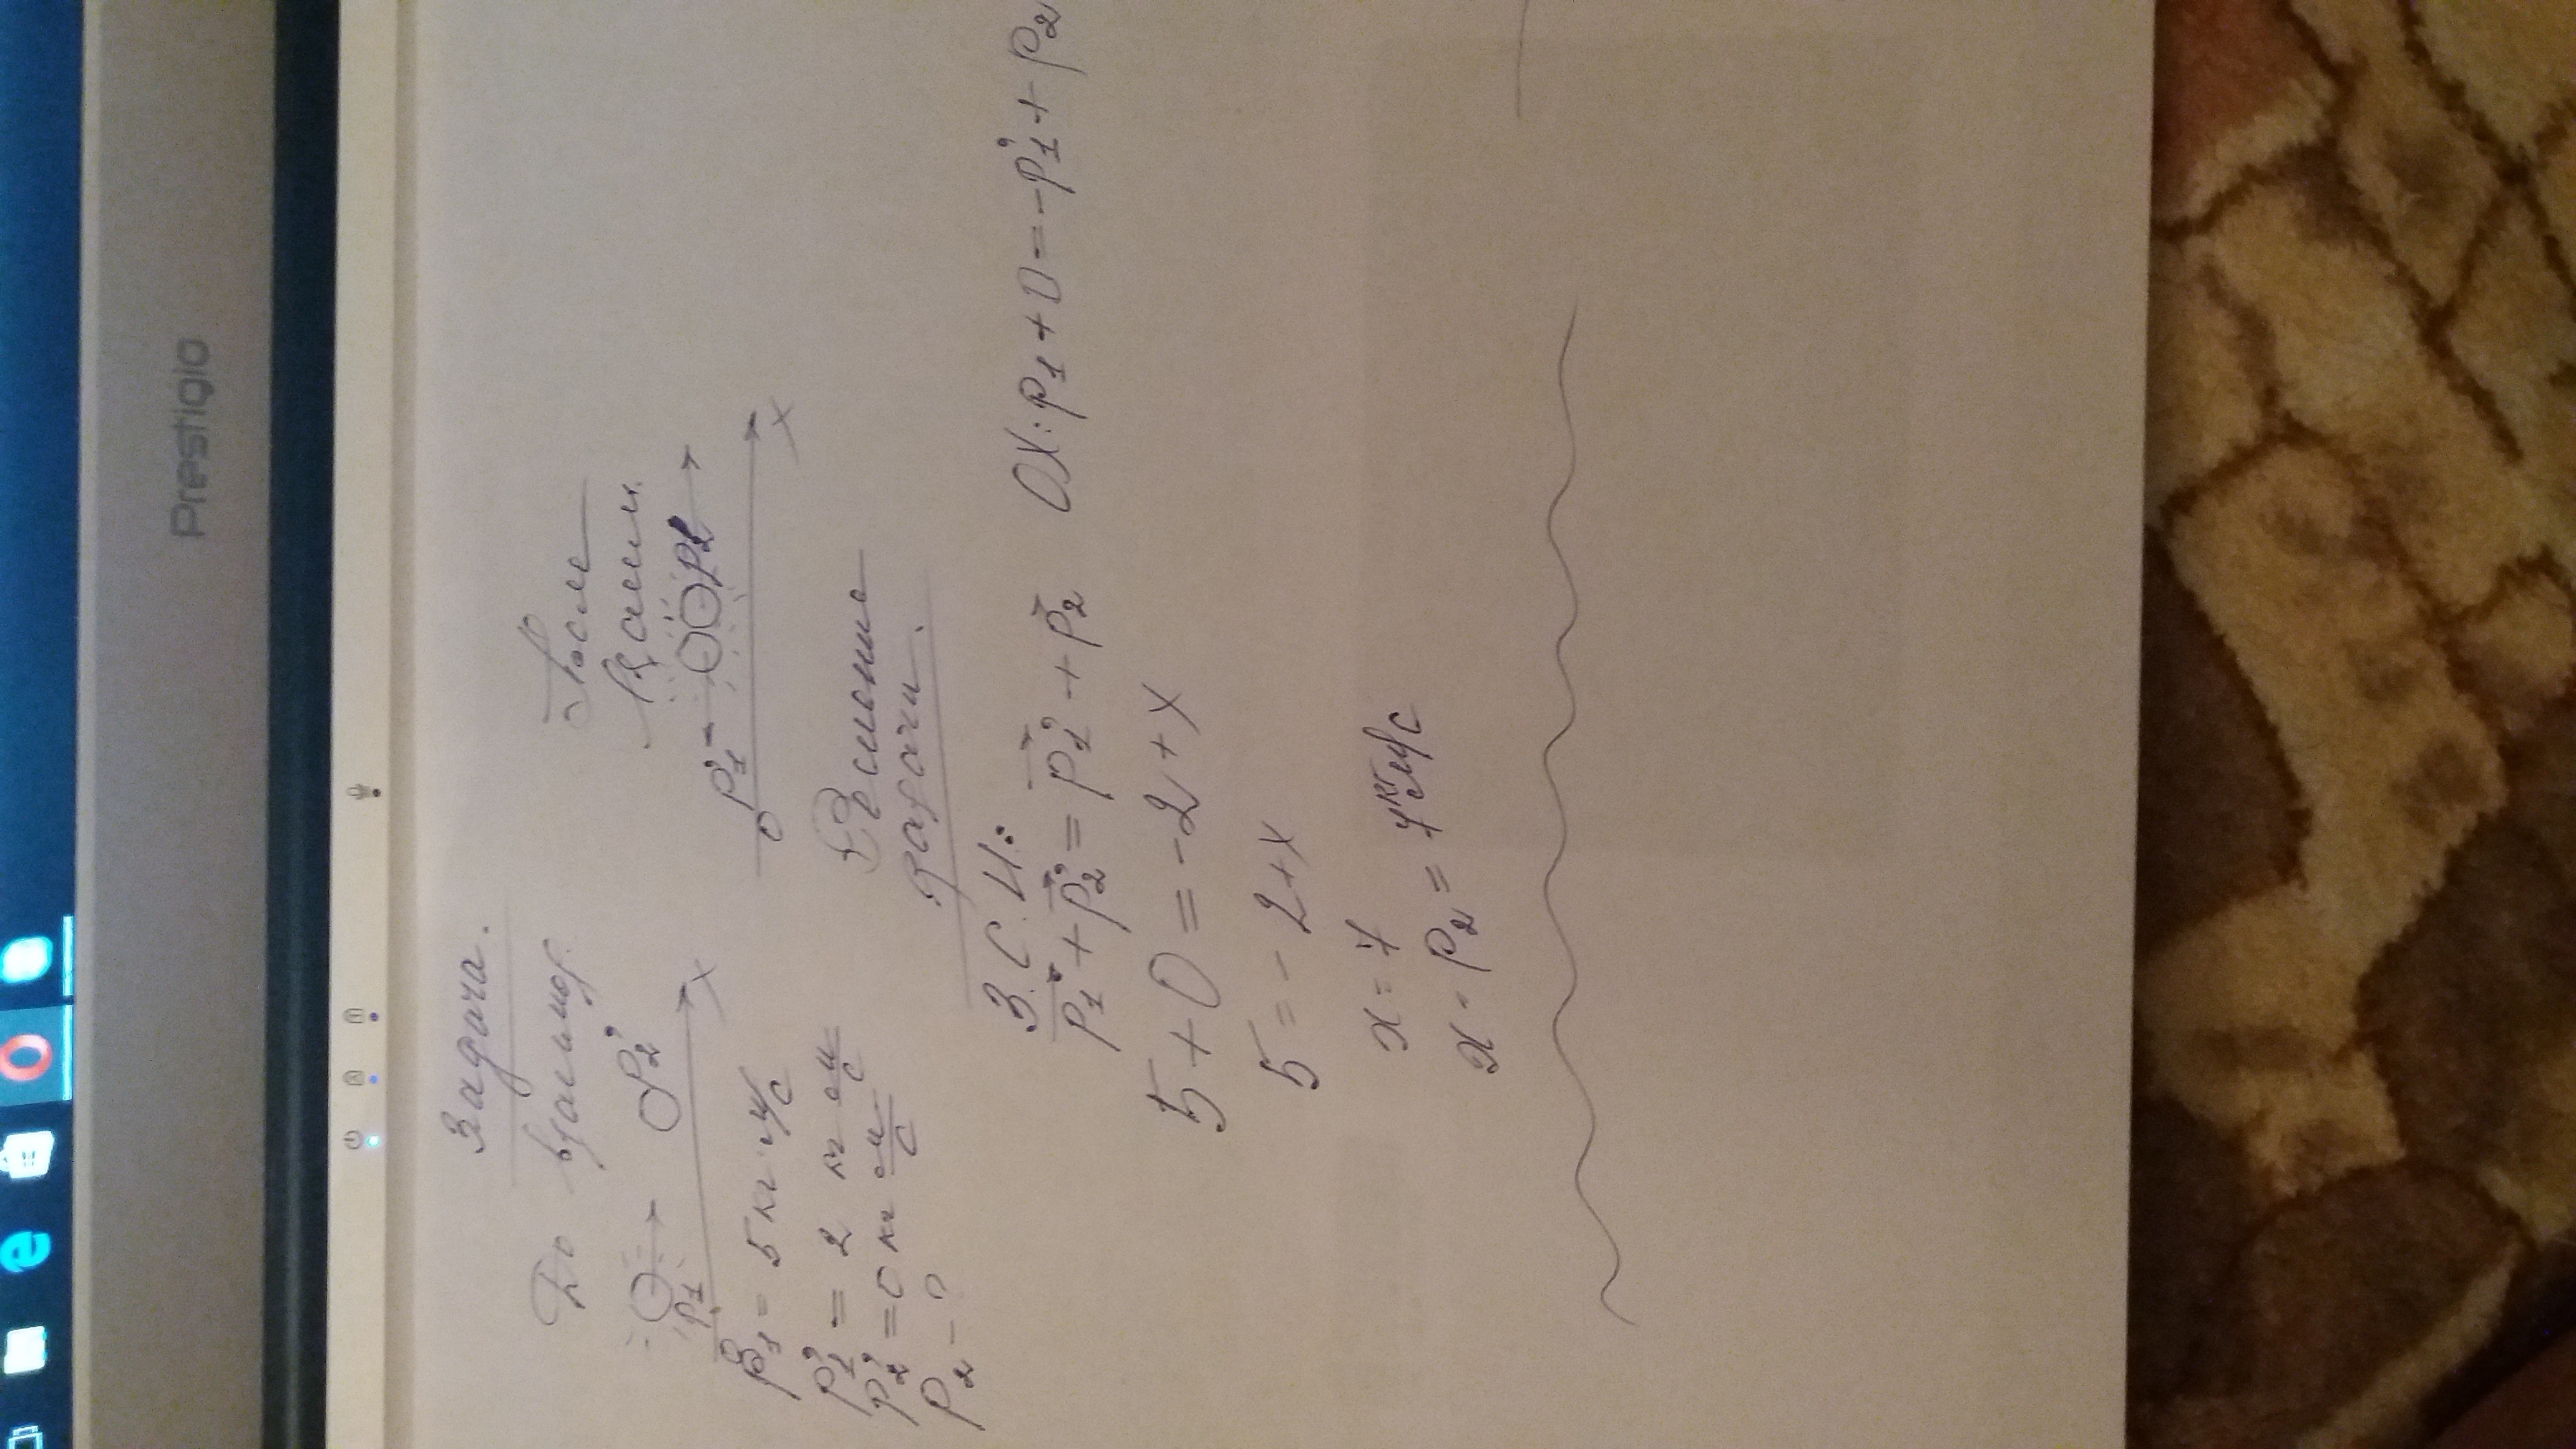 Prestigio
Задача.
До взаимод.
После взаим.
P₁ P₂'
X
P₁' P₂
O X
P₁ = 5 кг·м/с
P₁' = 2 кг м/с
P₂' = 0 кг м/с
P₂ - ?
Решение
задачи.
З.С.И.:
P₁ + P₂' = P₁' + P₂ OX: P₁ + 0 = -P₁' + P₂
5 + 0 = -2 + X
5 = -2 + X
x = 7
x - P₂ = 7 кг м/с